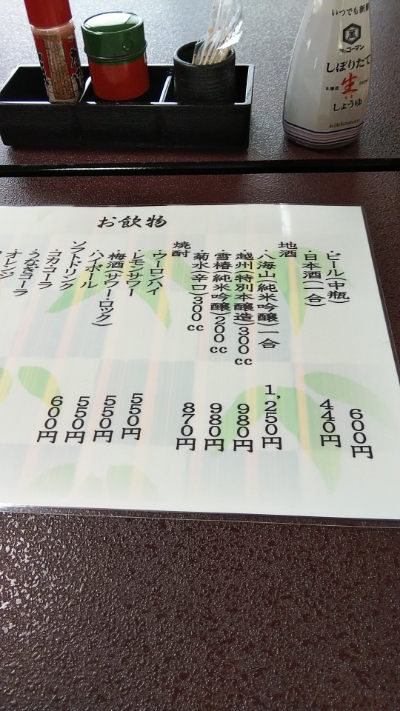 いつでも新鮮
キッコーマン
しぼりたて
生
しょうゆ
お飲物
・ビール(中瓶) 600円
・日本酒(一合) 440円
地酒
・八海山(純米吟醸)一合 1,250円
・越州(特別本醸造)300cc 980円
・雪椿(純米吟醸)200cc 980円
・菊水(辛口)300cc 870円
焼酎
・ウーロンハイ 550円
・レモンサワー 550円
・梅酒(サワー・ロック) 550円
・ハイボール 600円
ソフトドリンク
・コカ・コーラ
・うなぎコーラ
・オレンジ